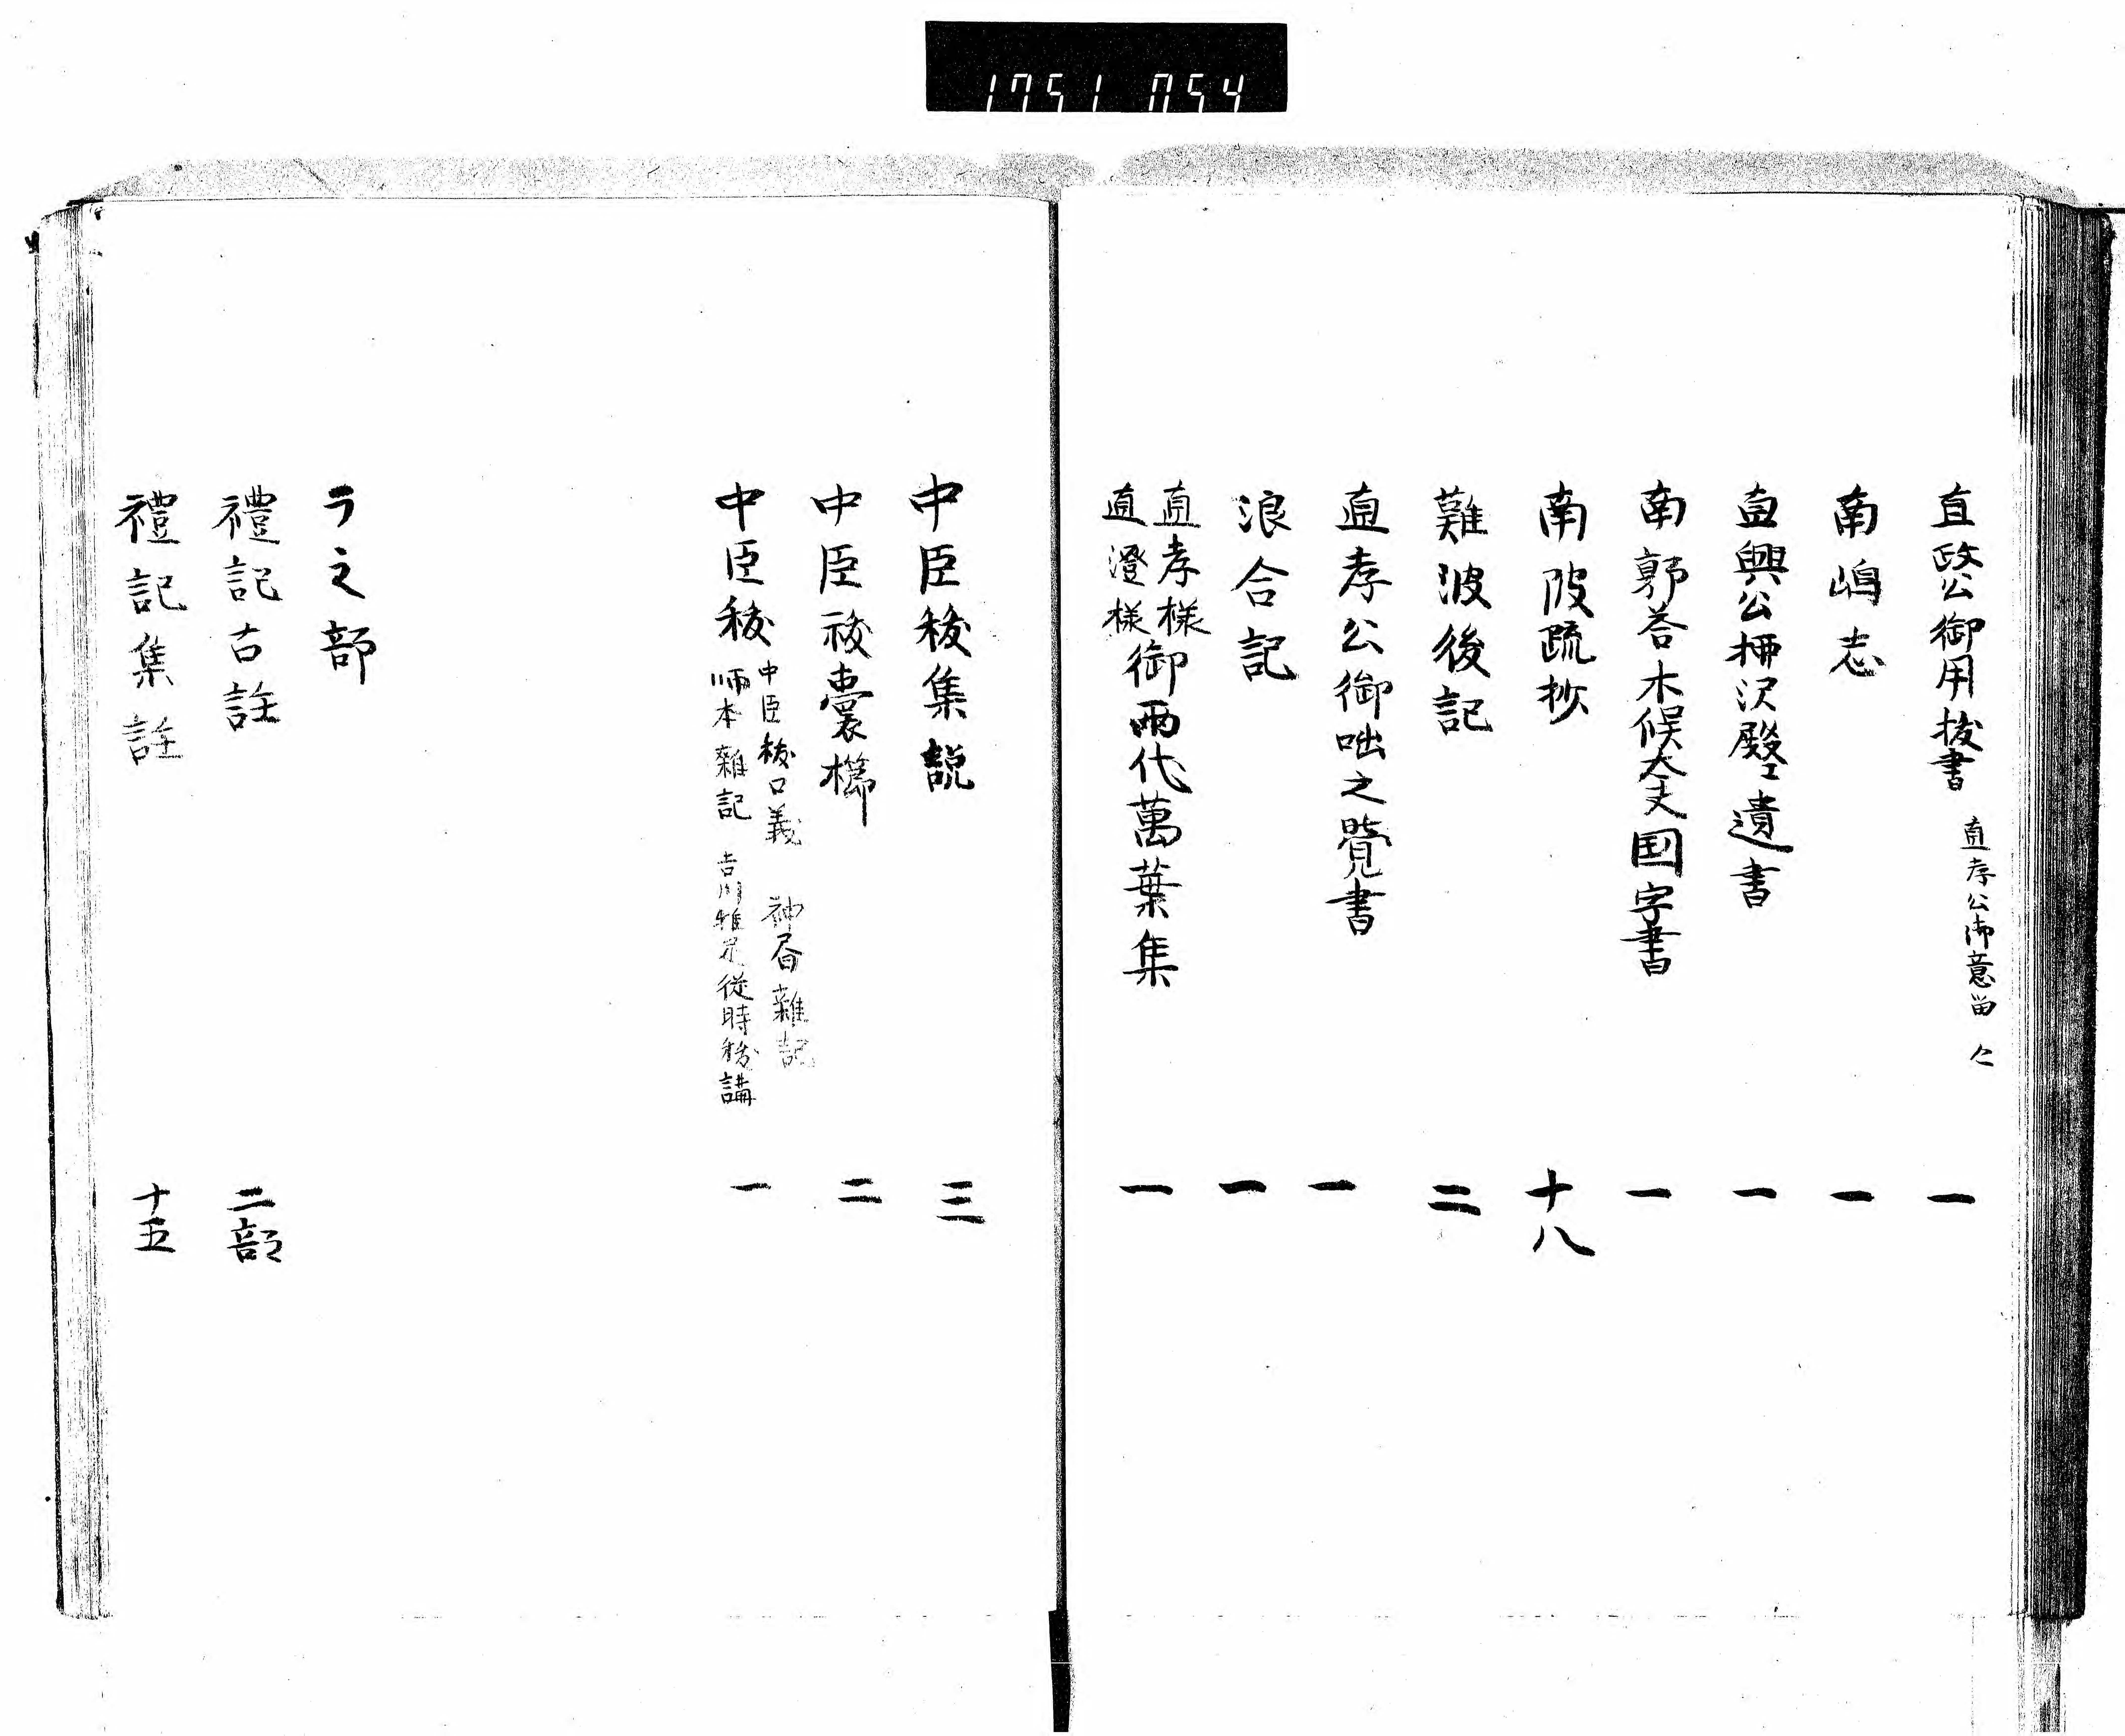 1751 054
直政公御用抜書 直孝公御意留 一
南嶋志 一
直興公柳沢殿江遺書 一
南郭答木俣大夫国字書 一
南陂疏抄 十八
難波後記 二
直孝公御咄之覺書 一
浪合記 一
直孝様
直澄様
御兩代萬葉集 一
中臣祓集説 三
中臣祓嚢櫛 二
中臣祓 一
中臣祓口義 神 雜記
師本雜記 吉川惟足從時秡講
ラ之部
禮記古註 二部
禮記集註 十五